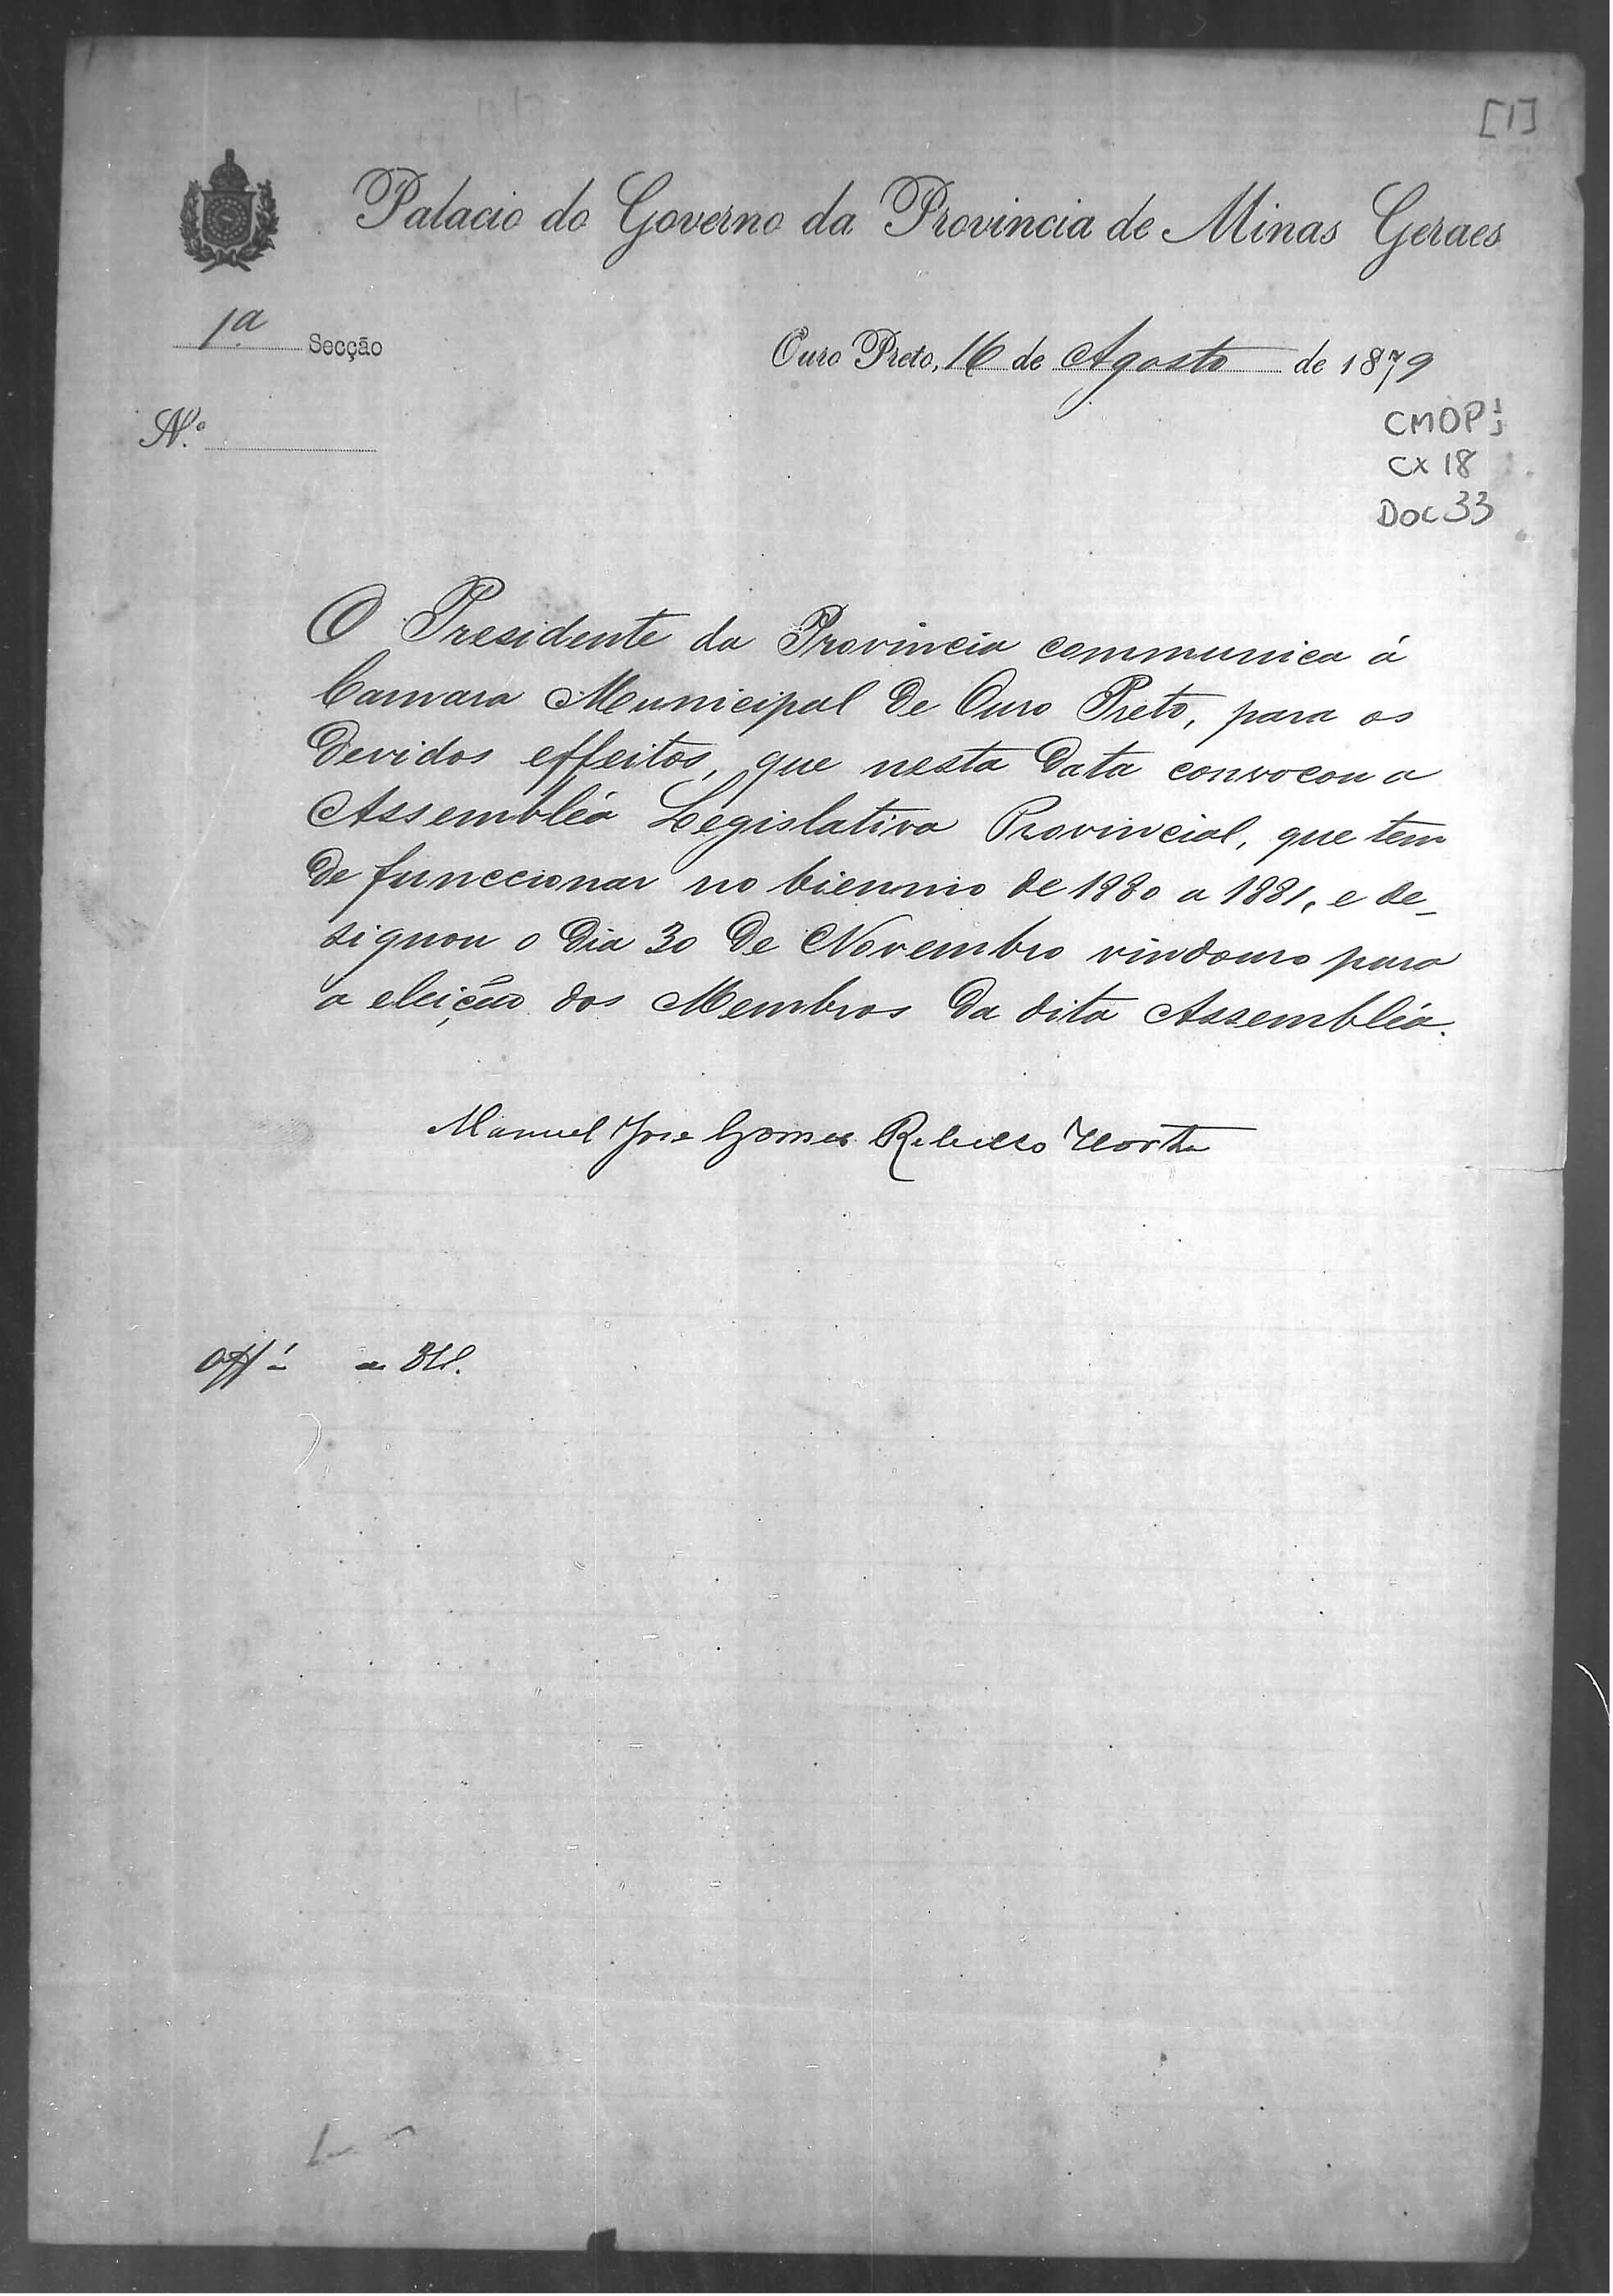 [1]
Palacio do Governo da Provincia de Minas Geraes
1ª Secção
Ouro Preto, 16 de Agosto de 1879
N.º
CMOP
CX 18
DOC 33
O Presidente da Provincia communica á
Camara Municipal de Ouro Preto, para os
devidos effeitos, que nesta data convocou a
Assembléa Legislativa Provincial, que tem
de funccionar no biennio de 1880 a 1881, e de_
signou o dia 30 de Novembro vindouro para
a eleição dos Membros da dita Assembléa.
Manuel José Gomes Rebello Horta